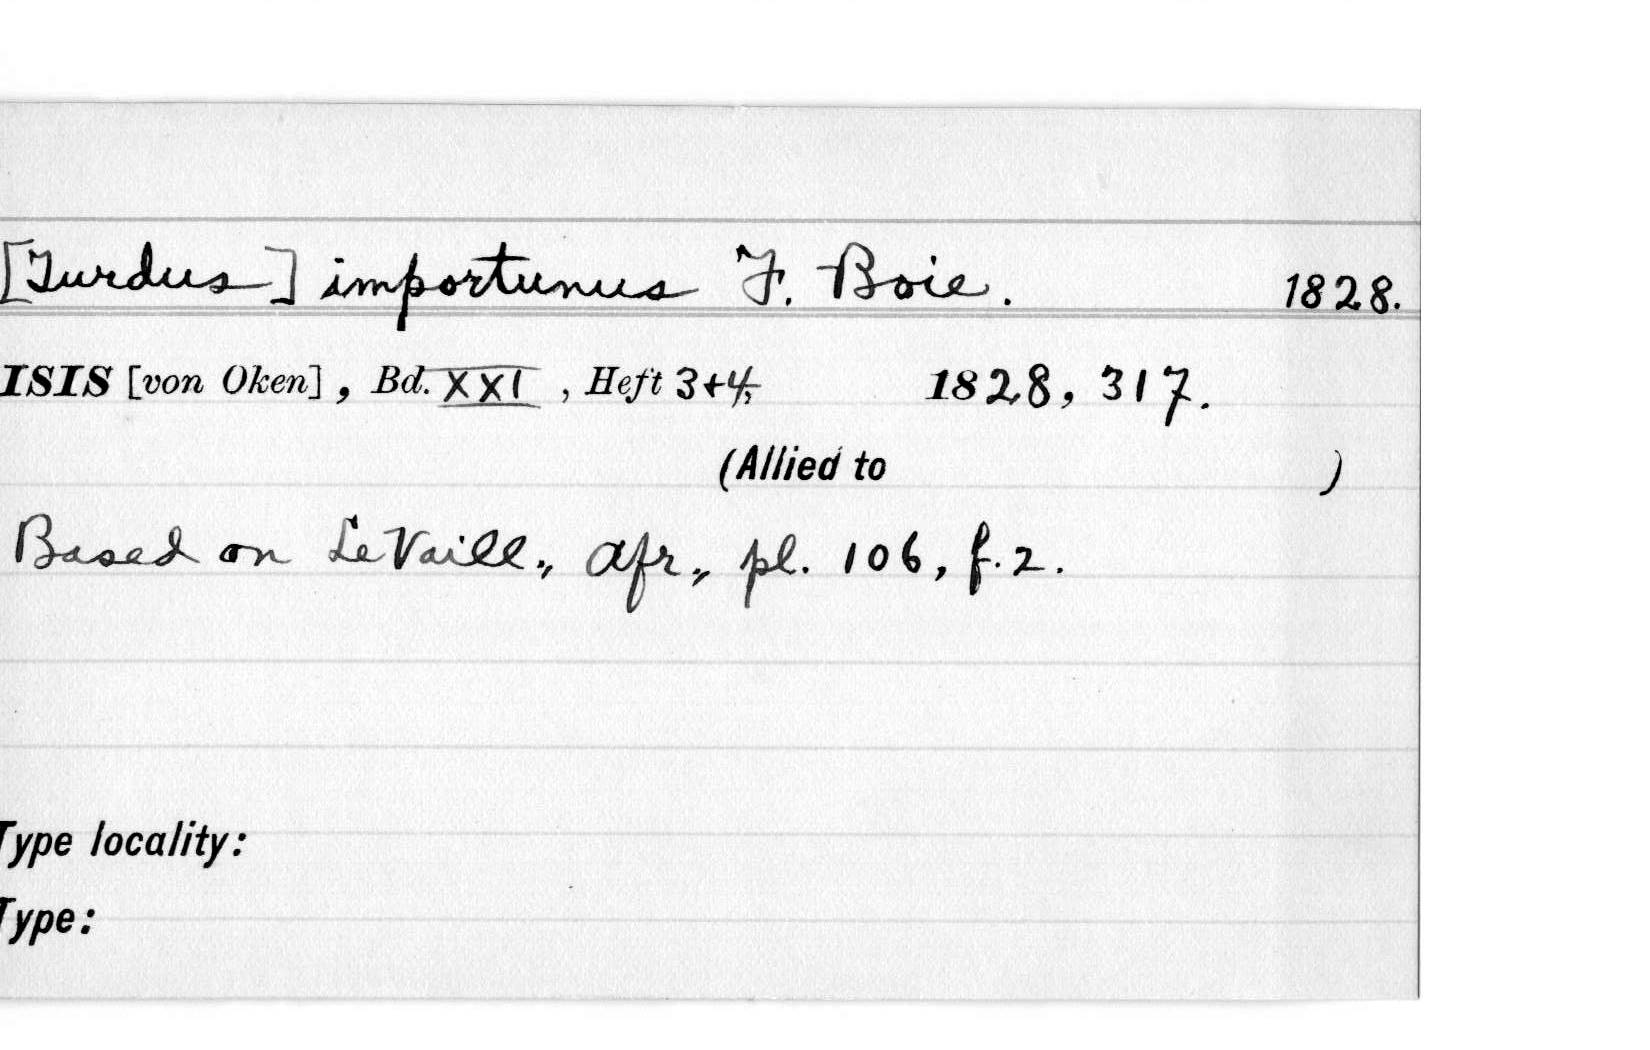 [Turdus] importunus F. Boie. 1828.
ISIS [von Oken], Bd. XXI, Heft 3+4, 1828, 317.
(Allied to )
Based on LeVaill., Afr., pl. 106, f. 2.
Type locality:
Type: